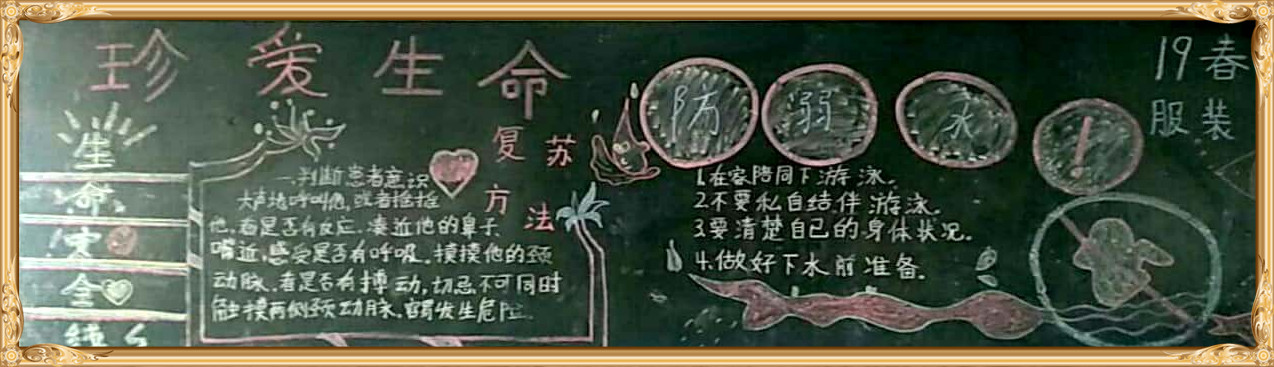 珍爱生命
19春
服装
生
命
安
全
复苏
方法
一.判断患者意识
大声地呼叫他,或者摇摇
他,看是否有反应.凑近他的鼻子、
嘴近,感受是否有呼吸.摸摸他的颈
动脉.看是否有搏动,切忌不可同时
触摸两侧颈动脉,容易发生危险.
防溺水!
1.在客陪同下游泳.
2.不要私自结伴游泳.
3.要清楚自己的身体状况.
4.做好下水前准备.